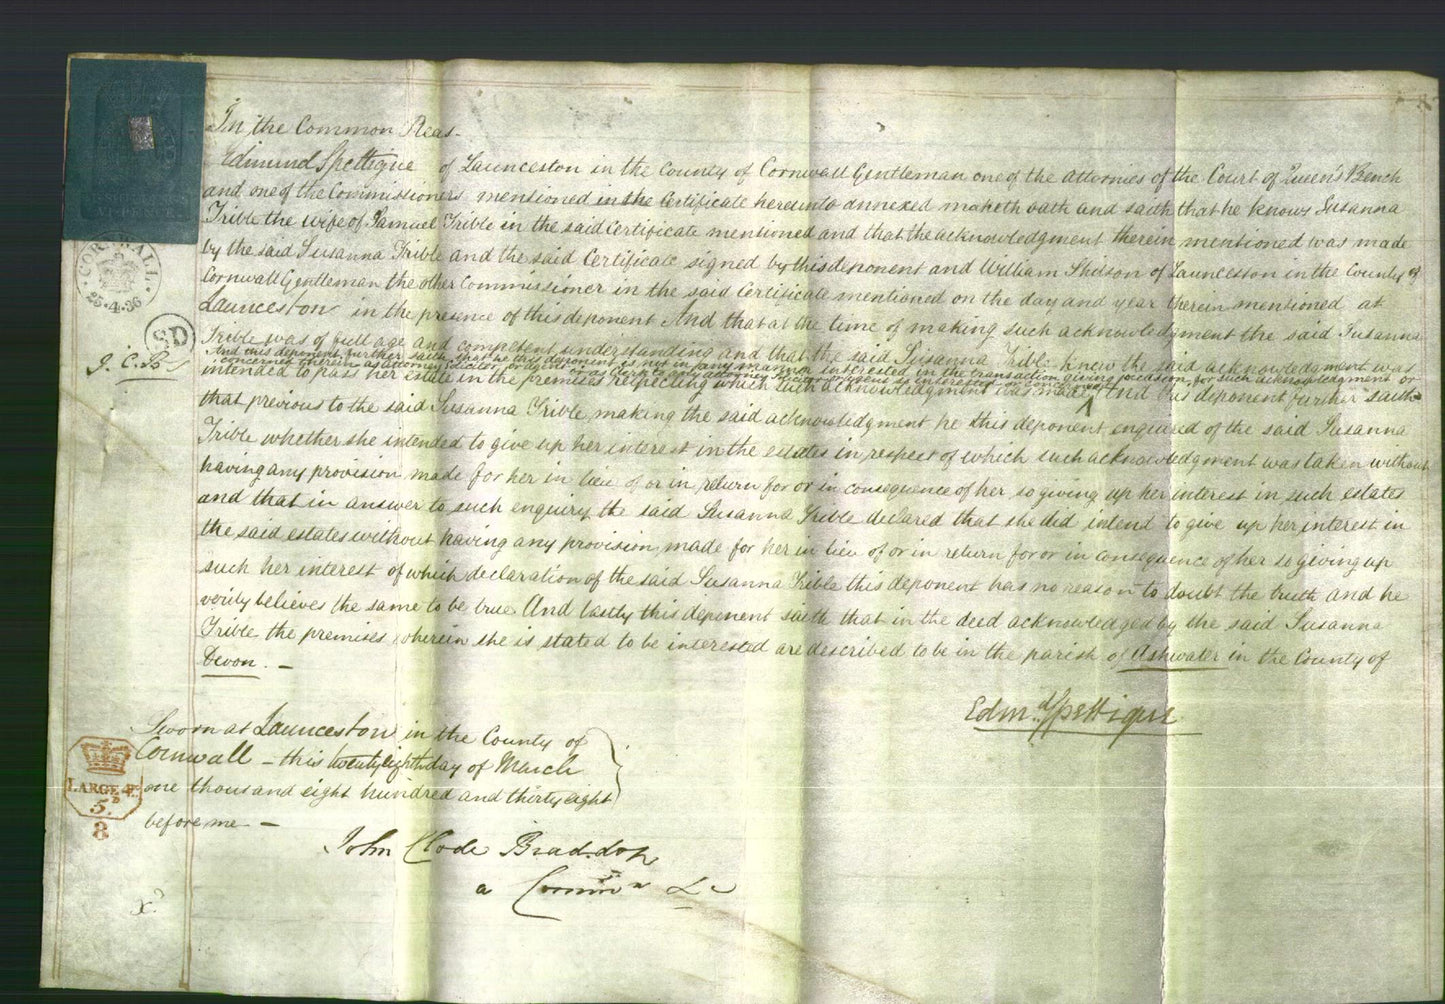 In the Common Pleas
Edmund Spettigue of Launceston in the County of Cornwall Gentleman one of the Attornies of the Court of Queen's Bench
and one of the Commissioners mentioned in the Certificate hereunto annexed maketh oath and saith that he knows Susanna
Trible the wife of Samuel Trible in the said Certificate mentioned and that the acknowledgment therein mentioned was made
by the said Susanna Trible and the said Certificate signed by this deponent and William Shilson of Launceston in the County of
Cornwall Gentleman the other Commissioner in the said Certificate mentioned on the day and year therein mentioned at
Launceston in the presence of this deponent And that at the time of making such acknowledgment the said Susanna
Trible was of full age and competent understanding and that the said Susanna Trible knew the said acknowledgment was
And this deponent further saith that he this deponent is not in any manner interested in the transaction giving occasion for such acknowledgment or
concerned therein as attorney solicitor or agent or as clerk to any attorney solicitor or agent so interested or concerned
intended to pass her estate in the premises respecting which such acknowledgment was made And this deponent further saith
that previous to the said Susanna Trible making the said acknowledgment he this deponent enquired of the said Susanna
Trible whether she intended to give up her interest in the estates in respect of which such acknowledgment was taken without
having any provision made for her in lieu of or in return for or in consequence of her so giving up her interest in such estates
and that in answer to such enquiry the said Susanna Trible declared that she did intend to give up her interest in
the said estates without having any provision made for her in lieu of or in return for or in consequence of her so giving up
such her interest of which declaration of the said Susanna Trible this deponent has no reason to doubt the truth and he
verily believes the same to be true And lastly this deponent saith that in the deed acknowledged by the said Susanna
Trible the premises wherein she is stated to be interested are described to be in the parish of Ashwater in the County of
Devon.
Edmd Spettigue
Sworn at Launceston in the County of
Cornwall - this twenty eighth day of March
one thousand eight hundred and thirty eight
before me -
John Clode Braddon
a Commr &c
CORNWALL
25.4.36
SD
J. C. B
LARGE 4to
5D
8